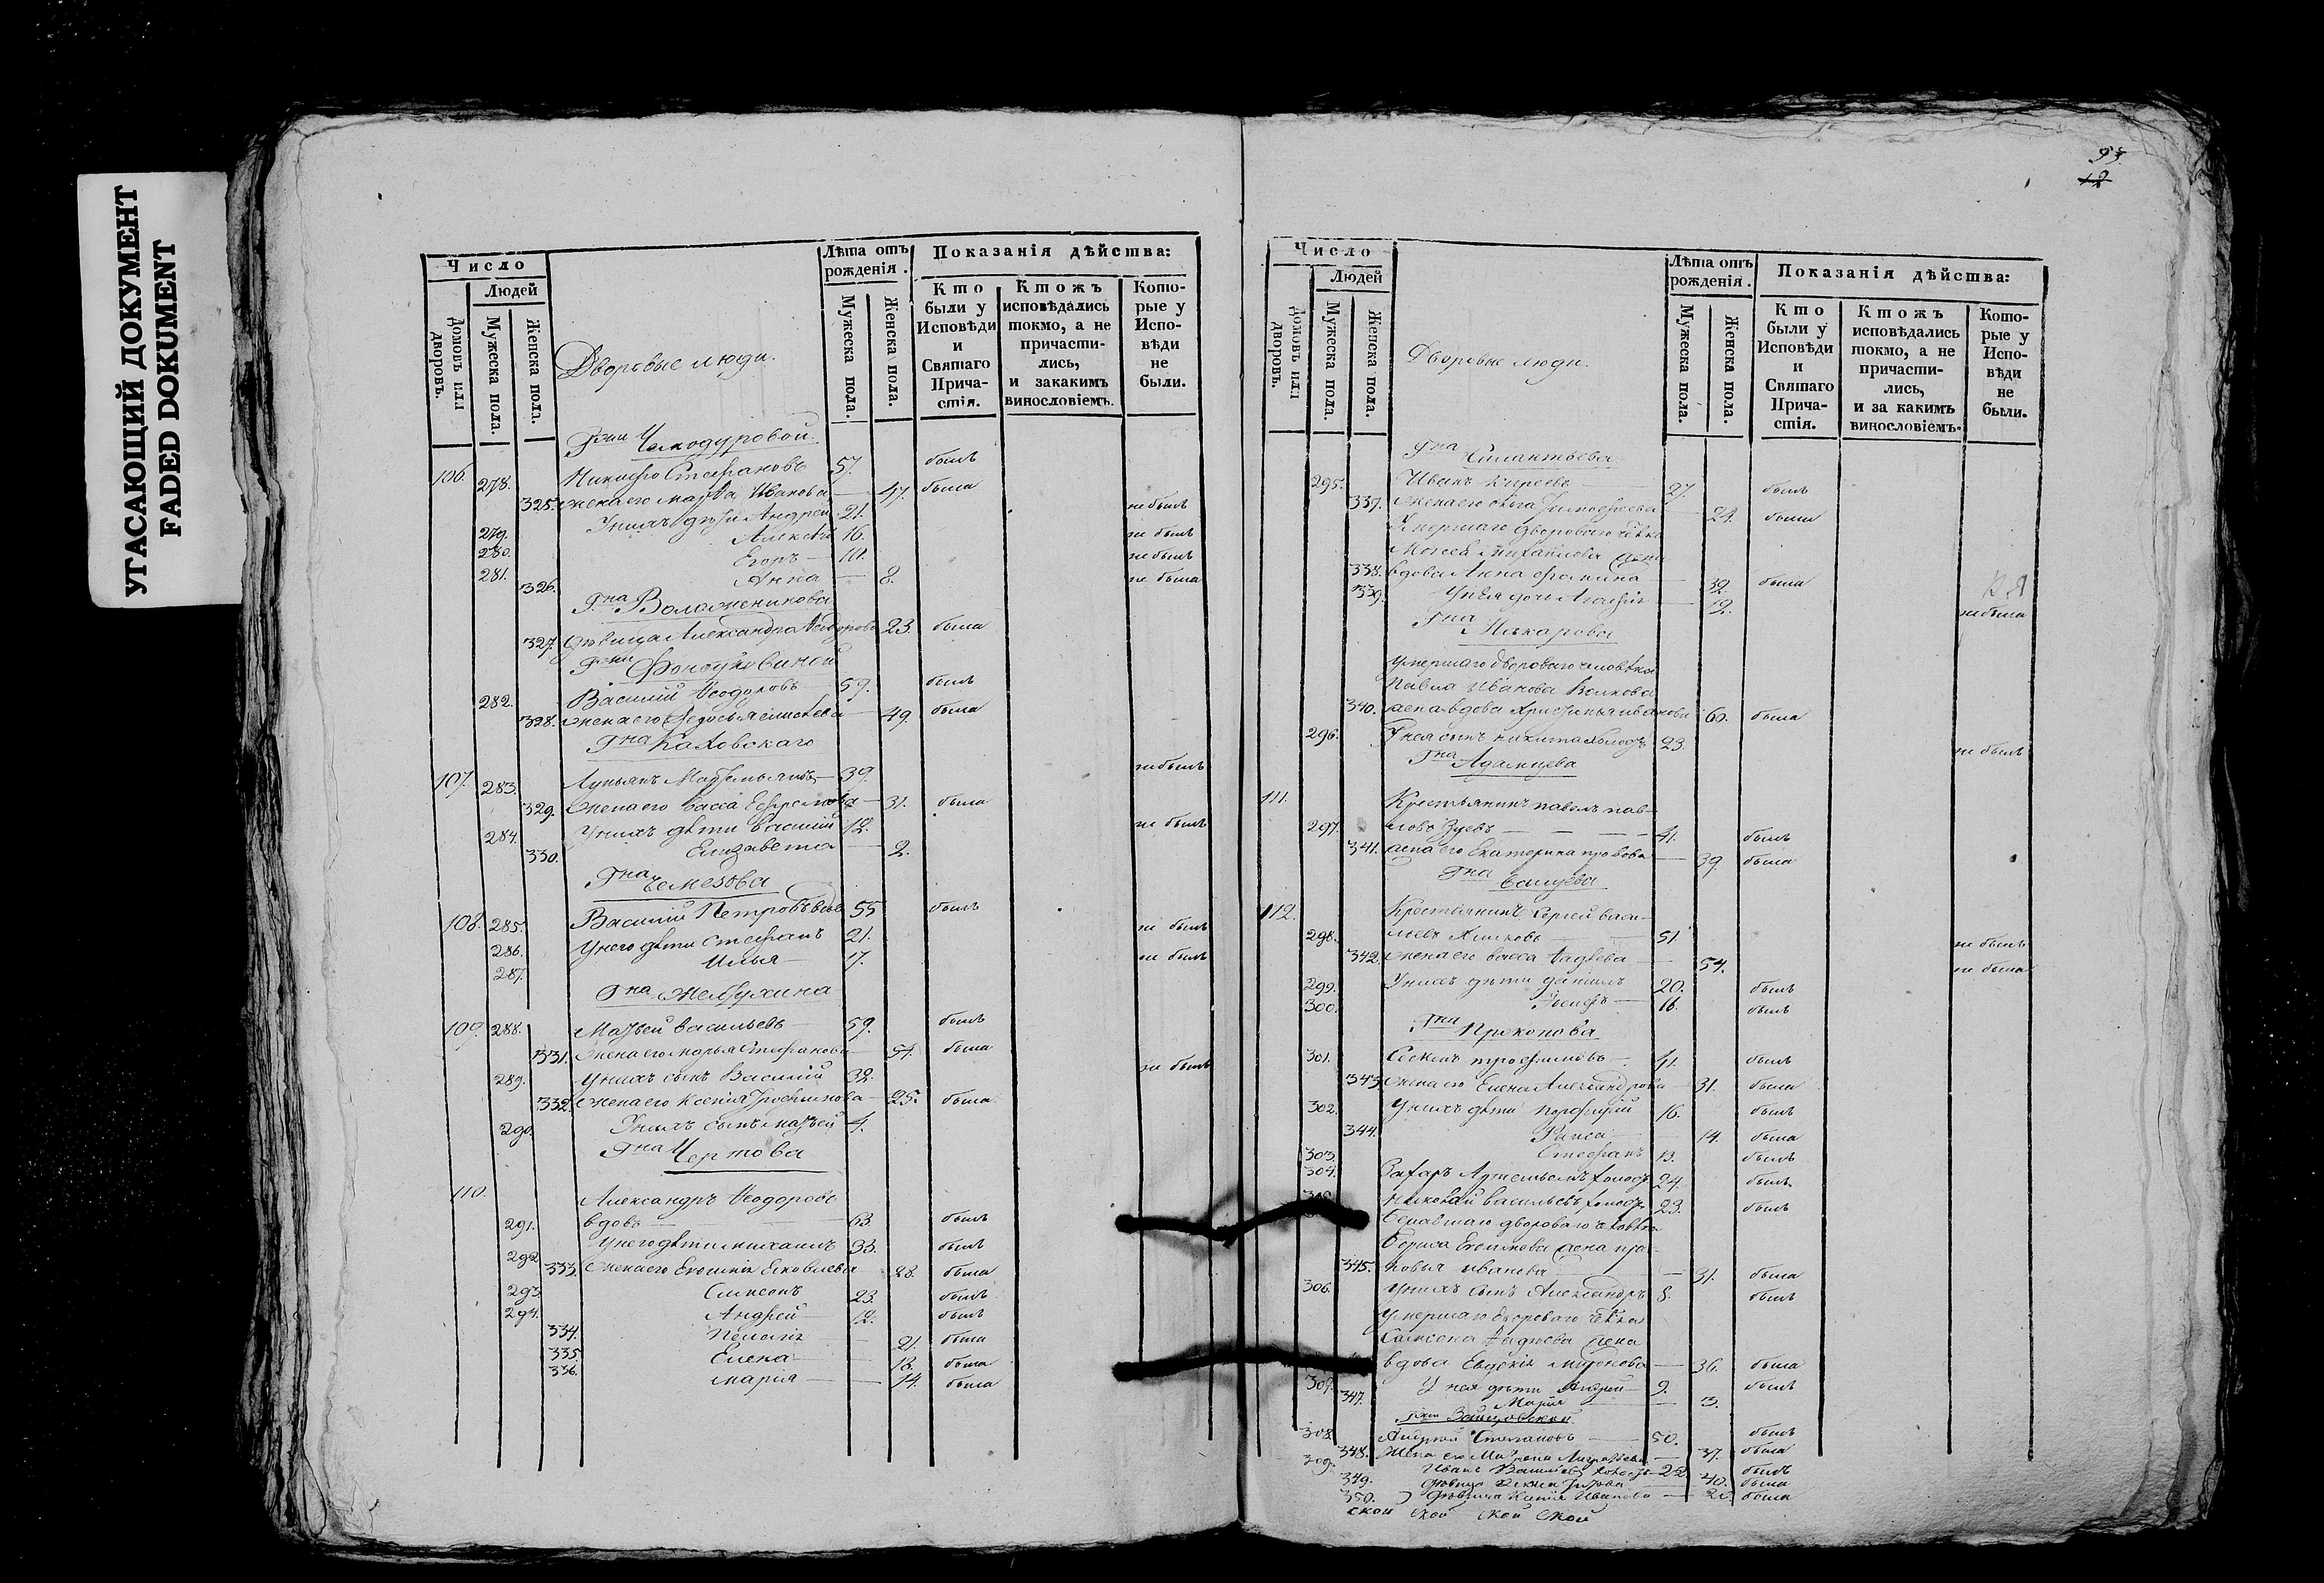 УГАСАЮЩИЙ ДОКУМЕНТ
FADED DOKUMENT
Число
Людей
Домовъ или дворовъ.
Мужеска пола.
Женска пола.
Дворовые люди.
Лѣта отъ рожденія.
Мужеска пола.
Женска пола.
Показанія дѣйства:
Кто были у Исповѣди и Святаго Причастія.
Ктожъ исповѣдались токмо, а не причастились, и закакимъ винословіемъ.
Которые у Исповѣди не были.
Гжи Чемодуровой
106. 278. Никифоръ Стефановъ 57. былъ
325. жена его Марѳа Иванова 47. была
279. У нихъ дѣти Андрей 21. не былъ
280. Алексѣй 16. не былъ
281. Егоръ 10. не былъ
326. Анна 8. не была
Гна Воложеникова
327. Дѣвица Александра Ѳеодорова 23. была
282. Василий Ѳеодоровъ 59. былъ
328. жена его Федосья 49. была
Гна Каховскаго
107. 283. Лукьянъ 39. не былъ
329. Жена его Васса Ефремова 31. была
284. У нихъ дѣти Василий 12. не былъ
330. Елизавета 2.
Гна Чемезова
108. 285. Василий Петровъ вдовъ 55 былъ
286. У него дѣти Стефанъ 21. не былъ
287. Илья 17. не былъ
Гна Желтухина
109. 288. Матвей Васильевъ 59. былъ
331. Жена его Марья Стефанова 54. была
289. У нихъ сынъ Василий 32. не былъ
332. Жена его Ксения Трофимова 25. была
290. У нихъ сынъ Матѳей 4.
Гна Чертова
110. Александръ Ѳеодоровъ
291. вдовъ 63. былъ
292. У него дѣти Михаилъ 33. былъ
333. Жена его Яковлева 28. была
293. Симеонъ 23. былъ
294. Андрей 12. былъ
334. Пелагія 21. была
335. Елена 18. была
336. Мария 14. была
93.
12
Число
Людей
Домовъ или дворовъ.
Мужеска пола.
Женска пола.
Дворовые люди.
Лѣта отъ рожденія.
Мужеска пола.
Женска пола.
Показанія дѣйства:
Кто были у Исповѣди и Святаго Причастія.
Ктожъ исповѣдались токмо, а не причастились, и за какимъ винословіемъ.
Которые у Исповѣди не были.
Гна Филантьева
295. Иванъ Киреевъ 27. былъ
337. жена его Ольга Тимофеева 24. была
Умершаго двороваго чѣлвка
Моисея Михайлова жена
338. вдова Анна Фомина 39. была
339. У нея дочь Агафія 12. не была
Гна Макарова
Умершаго двороваго человѣка
Павла Иванова Волкова
340. жена вдова Иванова 60. была
296. У нея сынъ Никита холостъ 23. не былъ
Гна Адамцева
111. Крестьянинъ Павелъ Пав-
297. ловъ Зуевъ 41. былъ
341. жена его Екатерина 39. была
112. Крестьянинъ Сергей Васи-
298. льевъ 51 не былъ
342. жена его Васса 54. не была
299. У нихъ дѣти Данилъ 20. былъ
300. Іосифъ 16. былъ
Гна Прокопова
301. Семенъ Трофимовъ 41. былъ
343. жена его Елена Александрова 31. была
302. У нихъ дѣти Порфирий 16. былъ
344. Раиса 14. была
303. Стефанъ 13. былъ
304. Захаръ холостъ 24. былъ
Николай Васильевъ холостъ 23. былъ
Бежавшаго двороваго человѣка
Бориса жена Пра-
345. ковья Иванова 31. была
306. У нихъ сынъ Александръ 8. былъ
Умершаго двороваго чѣлвка
Самсона жена
вдова Евдокія Миронова 36. была
307. У нея дѣти Андрей 9. былъ
347. Мария 3.
308. Андрей Степановъ 50. былъ
348. Жена его Матрена 37. была
309. Иванъ холостъ 22 былъ
349. Дѣвица 40. была
350. Дѣвица Ксенія Иванова была
ской ской ской ской